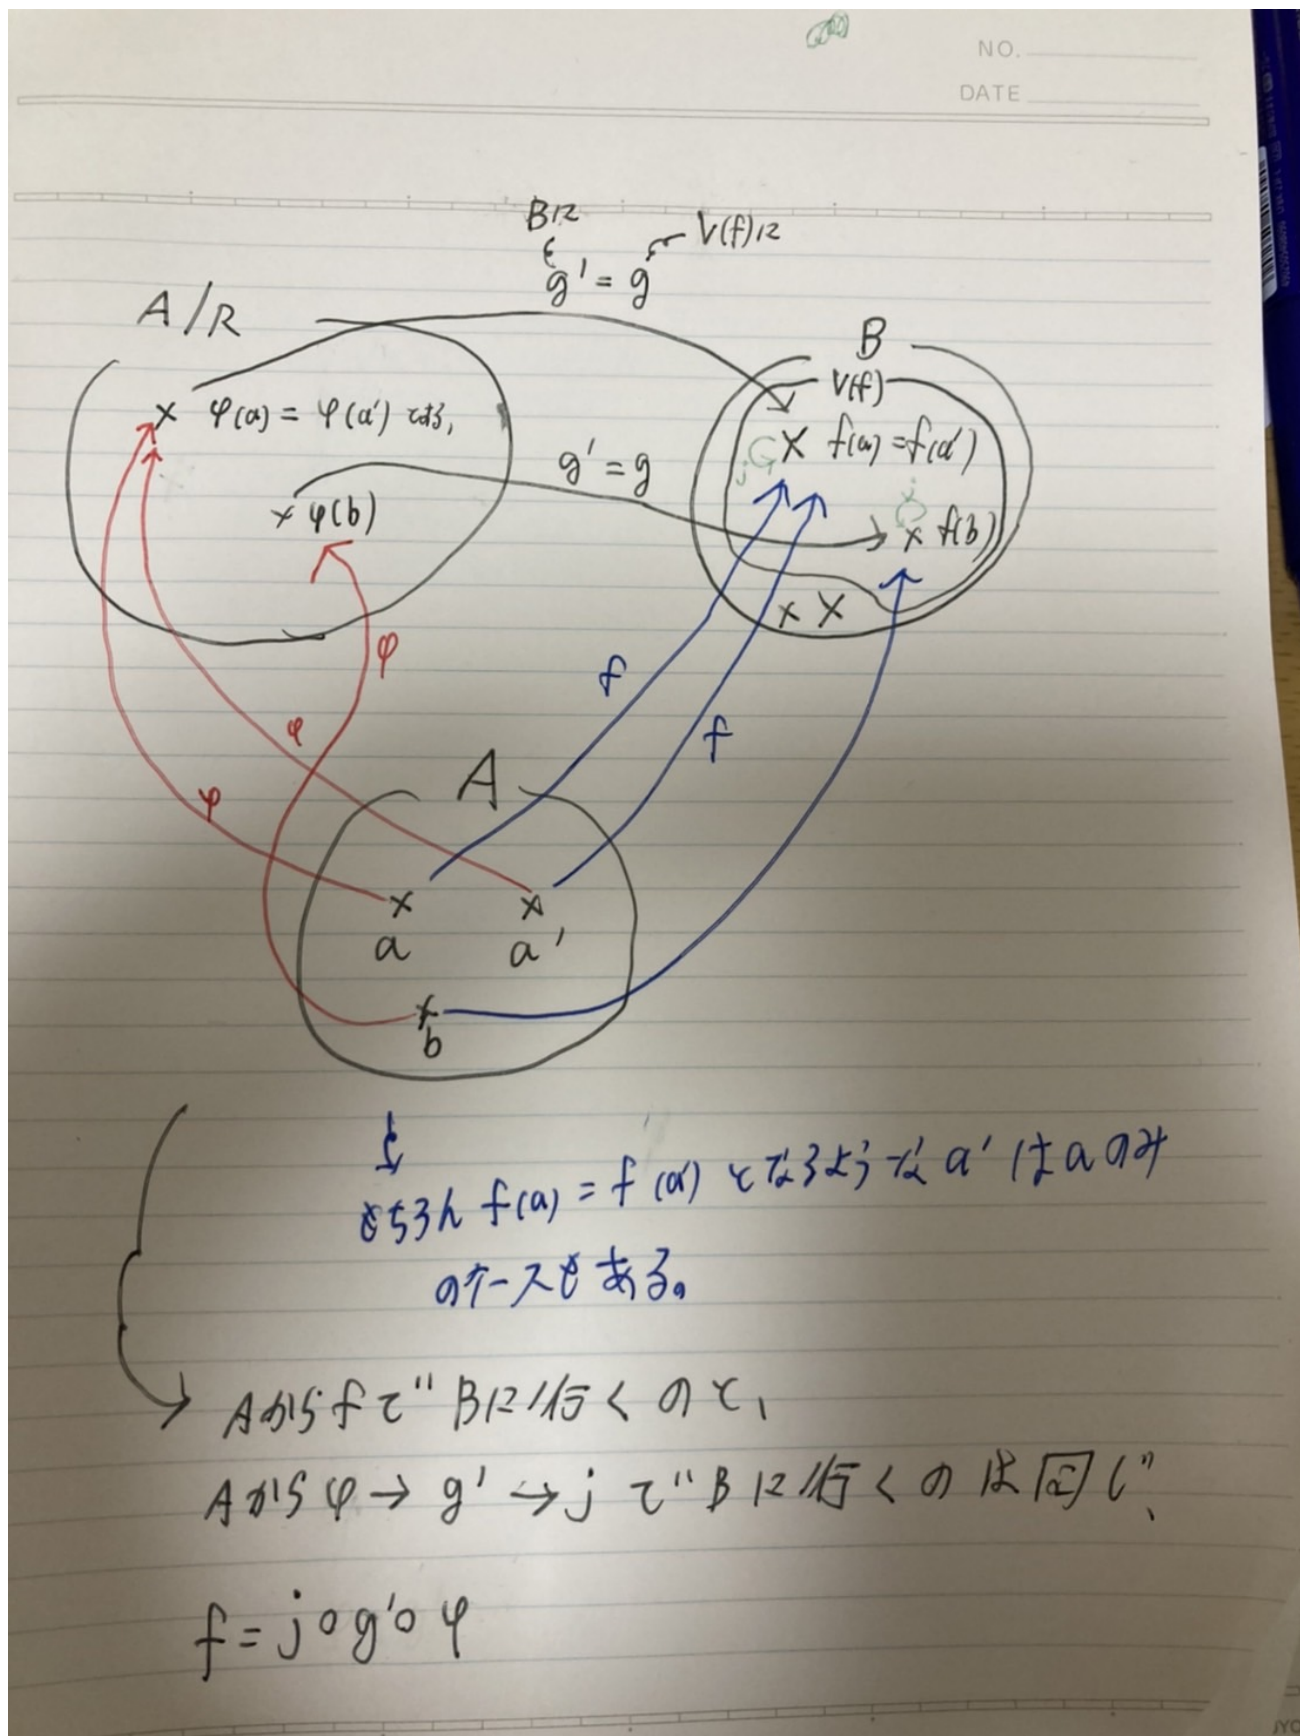 NO.
DATE
Bに
V(f)に
g' = g
A/R
B
V(f)
× φ(a) = φ(a') である,
j × f(a) = f(a')
g' = g
j
× φ(b)
× f(b)
× ×
φ
f
φ
f
φ
A
× ×
a a'
×
b
もちろん f(a) = f(a') となるような a' は aのみ
のケースもある。
Aから fで Bに行くのと、
Aから φ → g' → j で Bに行くのは同じ、
f = j o g' o φ